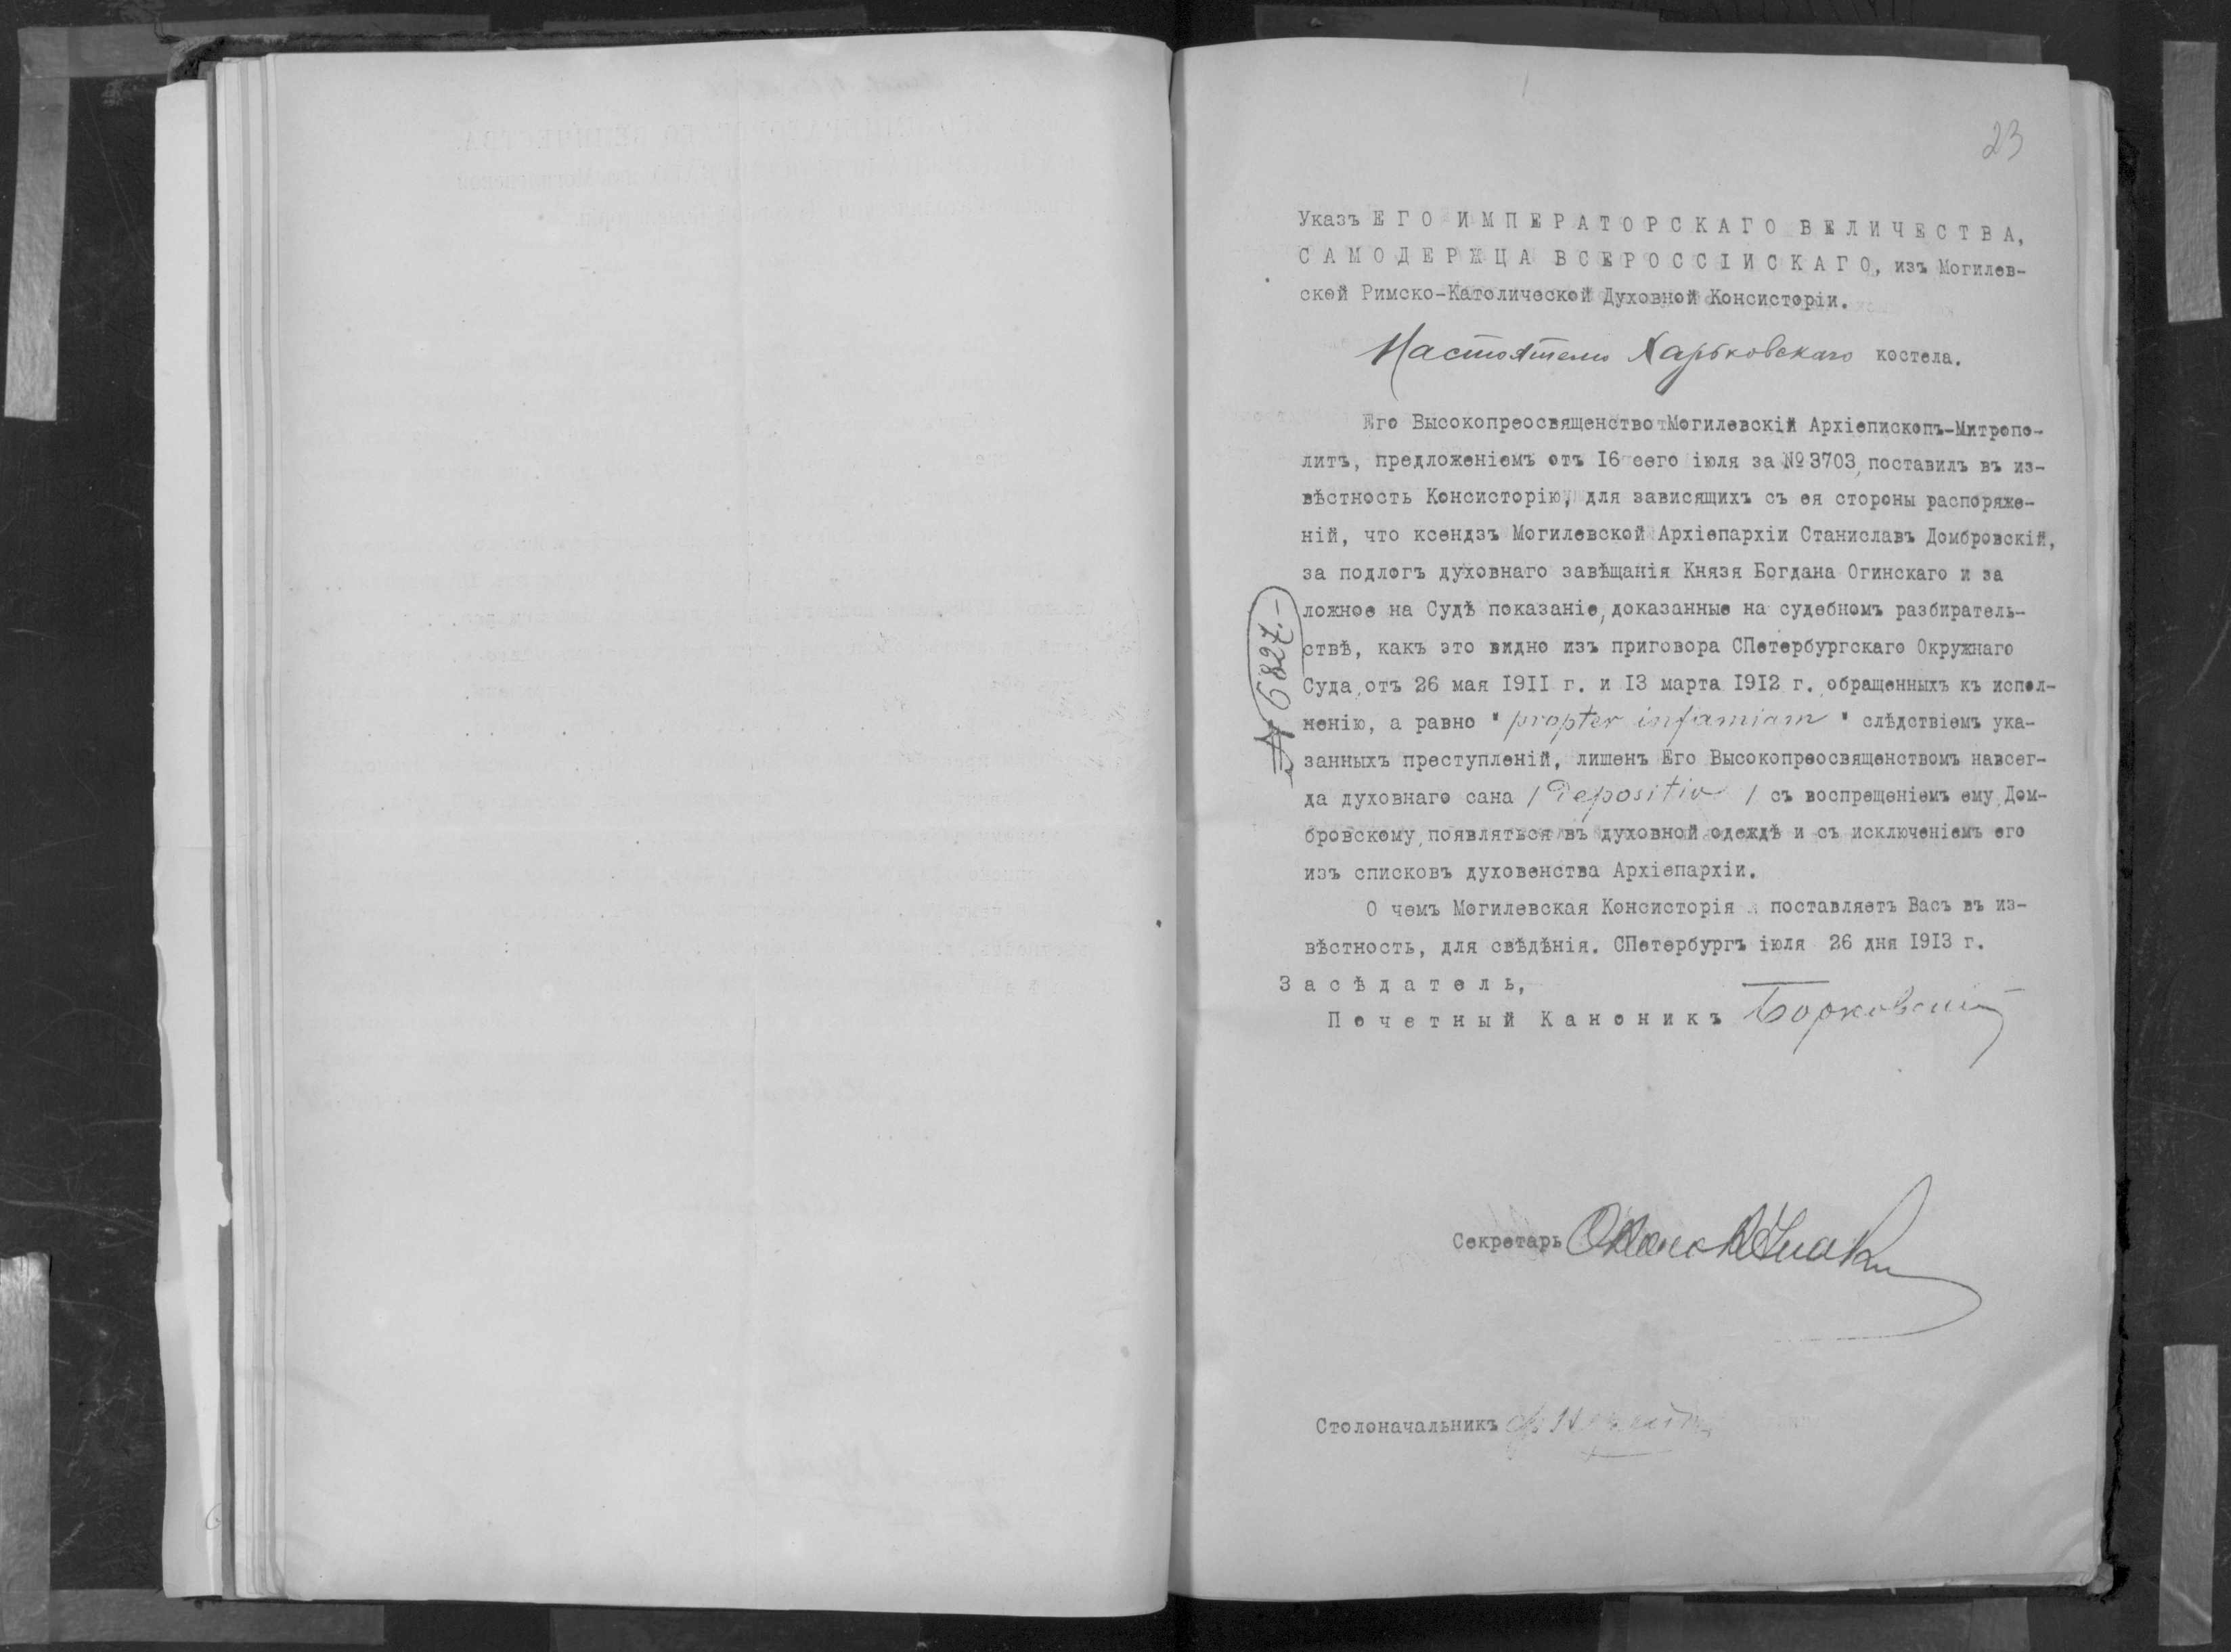 23
Указъ ЕГО ИМПЕРАТОРСКАГО ВЕЛИЧЕСТВА,
САМОДЕРЖЦА ВСЕРОССІЙСКАГО, изъ Могилев-
ской Римско-Католической Духовной Консисторіи.
Настоятелю Харьковскаго костела.
Его Высокопреосвященство Могилевскій Архіепископъ-Митропо-
литъ, предложеніемъ отъ 16 сего іюля за №3703, поставилъ въ из-
вѣстность Консисторію, для зависящихъ съ ея стороны распоряже-
ній, что ксендзъ Могилевской Архіепархіи Станиславъ Домбровскій,
за подлогъ духовнаго завѣщанія Князя Богдана Огинскаго и за
ложное на Судѣ показаніе, доказанные на судебномъ разбиратель-
ствѣ, какъ это видно изъ приговора СПетербургскаго Окружнаго
Суда, отъ 26 мая 1911 г. и 13 марта 1912 г. обращенныхъ къ испол-
ненію, а равно "propter infamiam" слѣдствіемъ ука-
занныхъ преступленій, лишенъ Его Высокопреосвященствомъ навсег-
да духовнаго сана /Depositio/ съ воспрещеніемъ ему, Дом-
бровскому, появляться въ духовной одеждѣ и съ исключеніемъ его
изъ списковъ духовенства Архіепархіи.
О чемъ Могилевская Консисторія поставляетъ Васъ въ из-
вѣстность, для свѣдѣнія. СПетербургъ іюля 26 дня 1913 г.
Засѣдатель,
Почетный Каноникъ Борковскій
Секретарь
Столоначальникъ
№ 6827.-